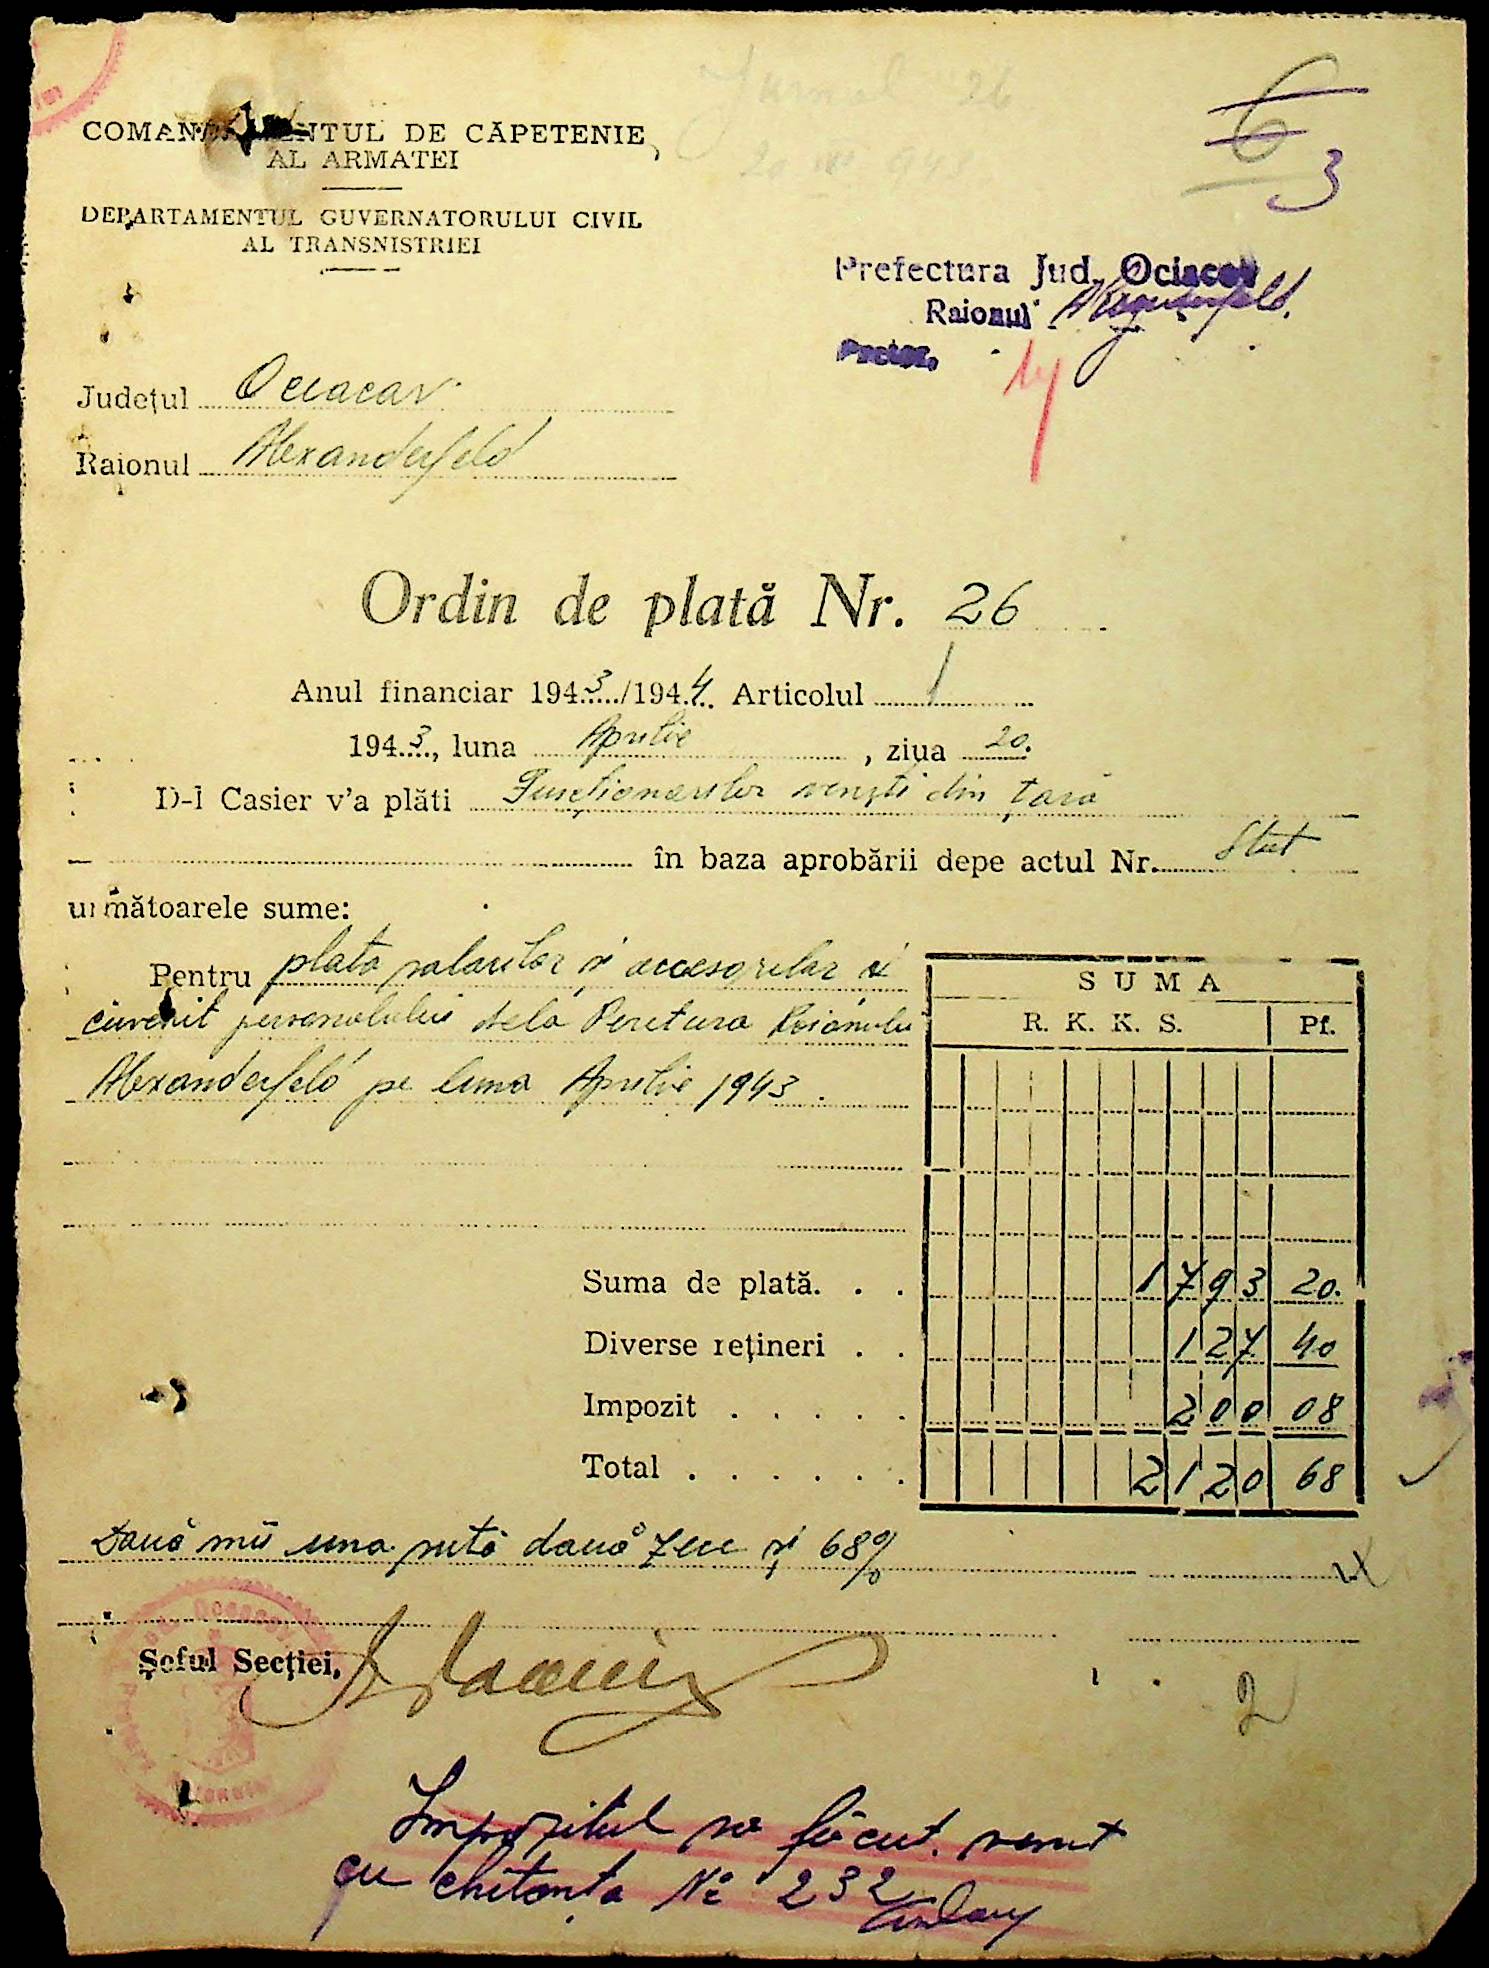 Jurnal 26
20 IV 943
6
3
COMANDAMENTUL DE CĂPETENIE
AL ARMATEI
DEPARTAMENTUL GUVERNATORULUI CIVIL
AL TRANSNISTRIEI
Prefectura Jud. Ociacov
Raionul Alexanderfeld.
Județul Ociacov
Raionul Alexanderfeld
Ordin de plată Nr. 26
Anul financiar 1943/1944 Articolul 1
1943, luna Aprilie, ziua 20.
D-l Casier v'a plăti Funcționarilor veniți din țară
în baza aprobării depe actul Nr. Stat
următoarele sume:
Pentru plata salariilor și accesoriilor ce
cuvenit personalului dela Pretura Raionului
Alexanderfeld pe luna Aprilie 1943.
SUMA
R. K. K. S. Pf.
Suma de plată. . . 1793 20.
Diverse rețineri . . 127 40
Impozit . . . . . 200 08
Total . . . . . . 2120 68
Două mii una sută două zece și 68%
Șeful Secției,
2
Impozitul sa făcut. vărsat
cu chitanța No 232